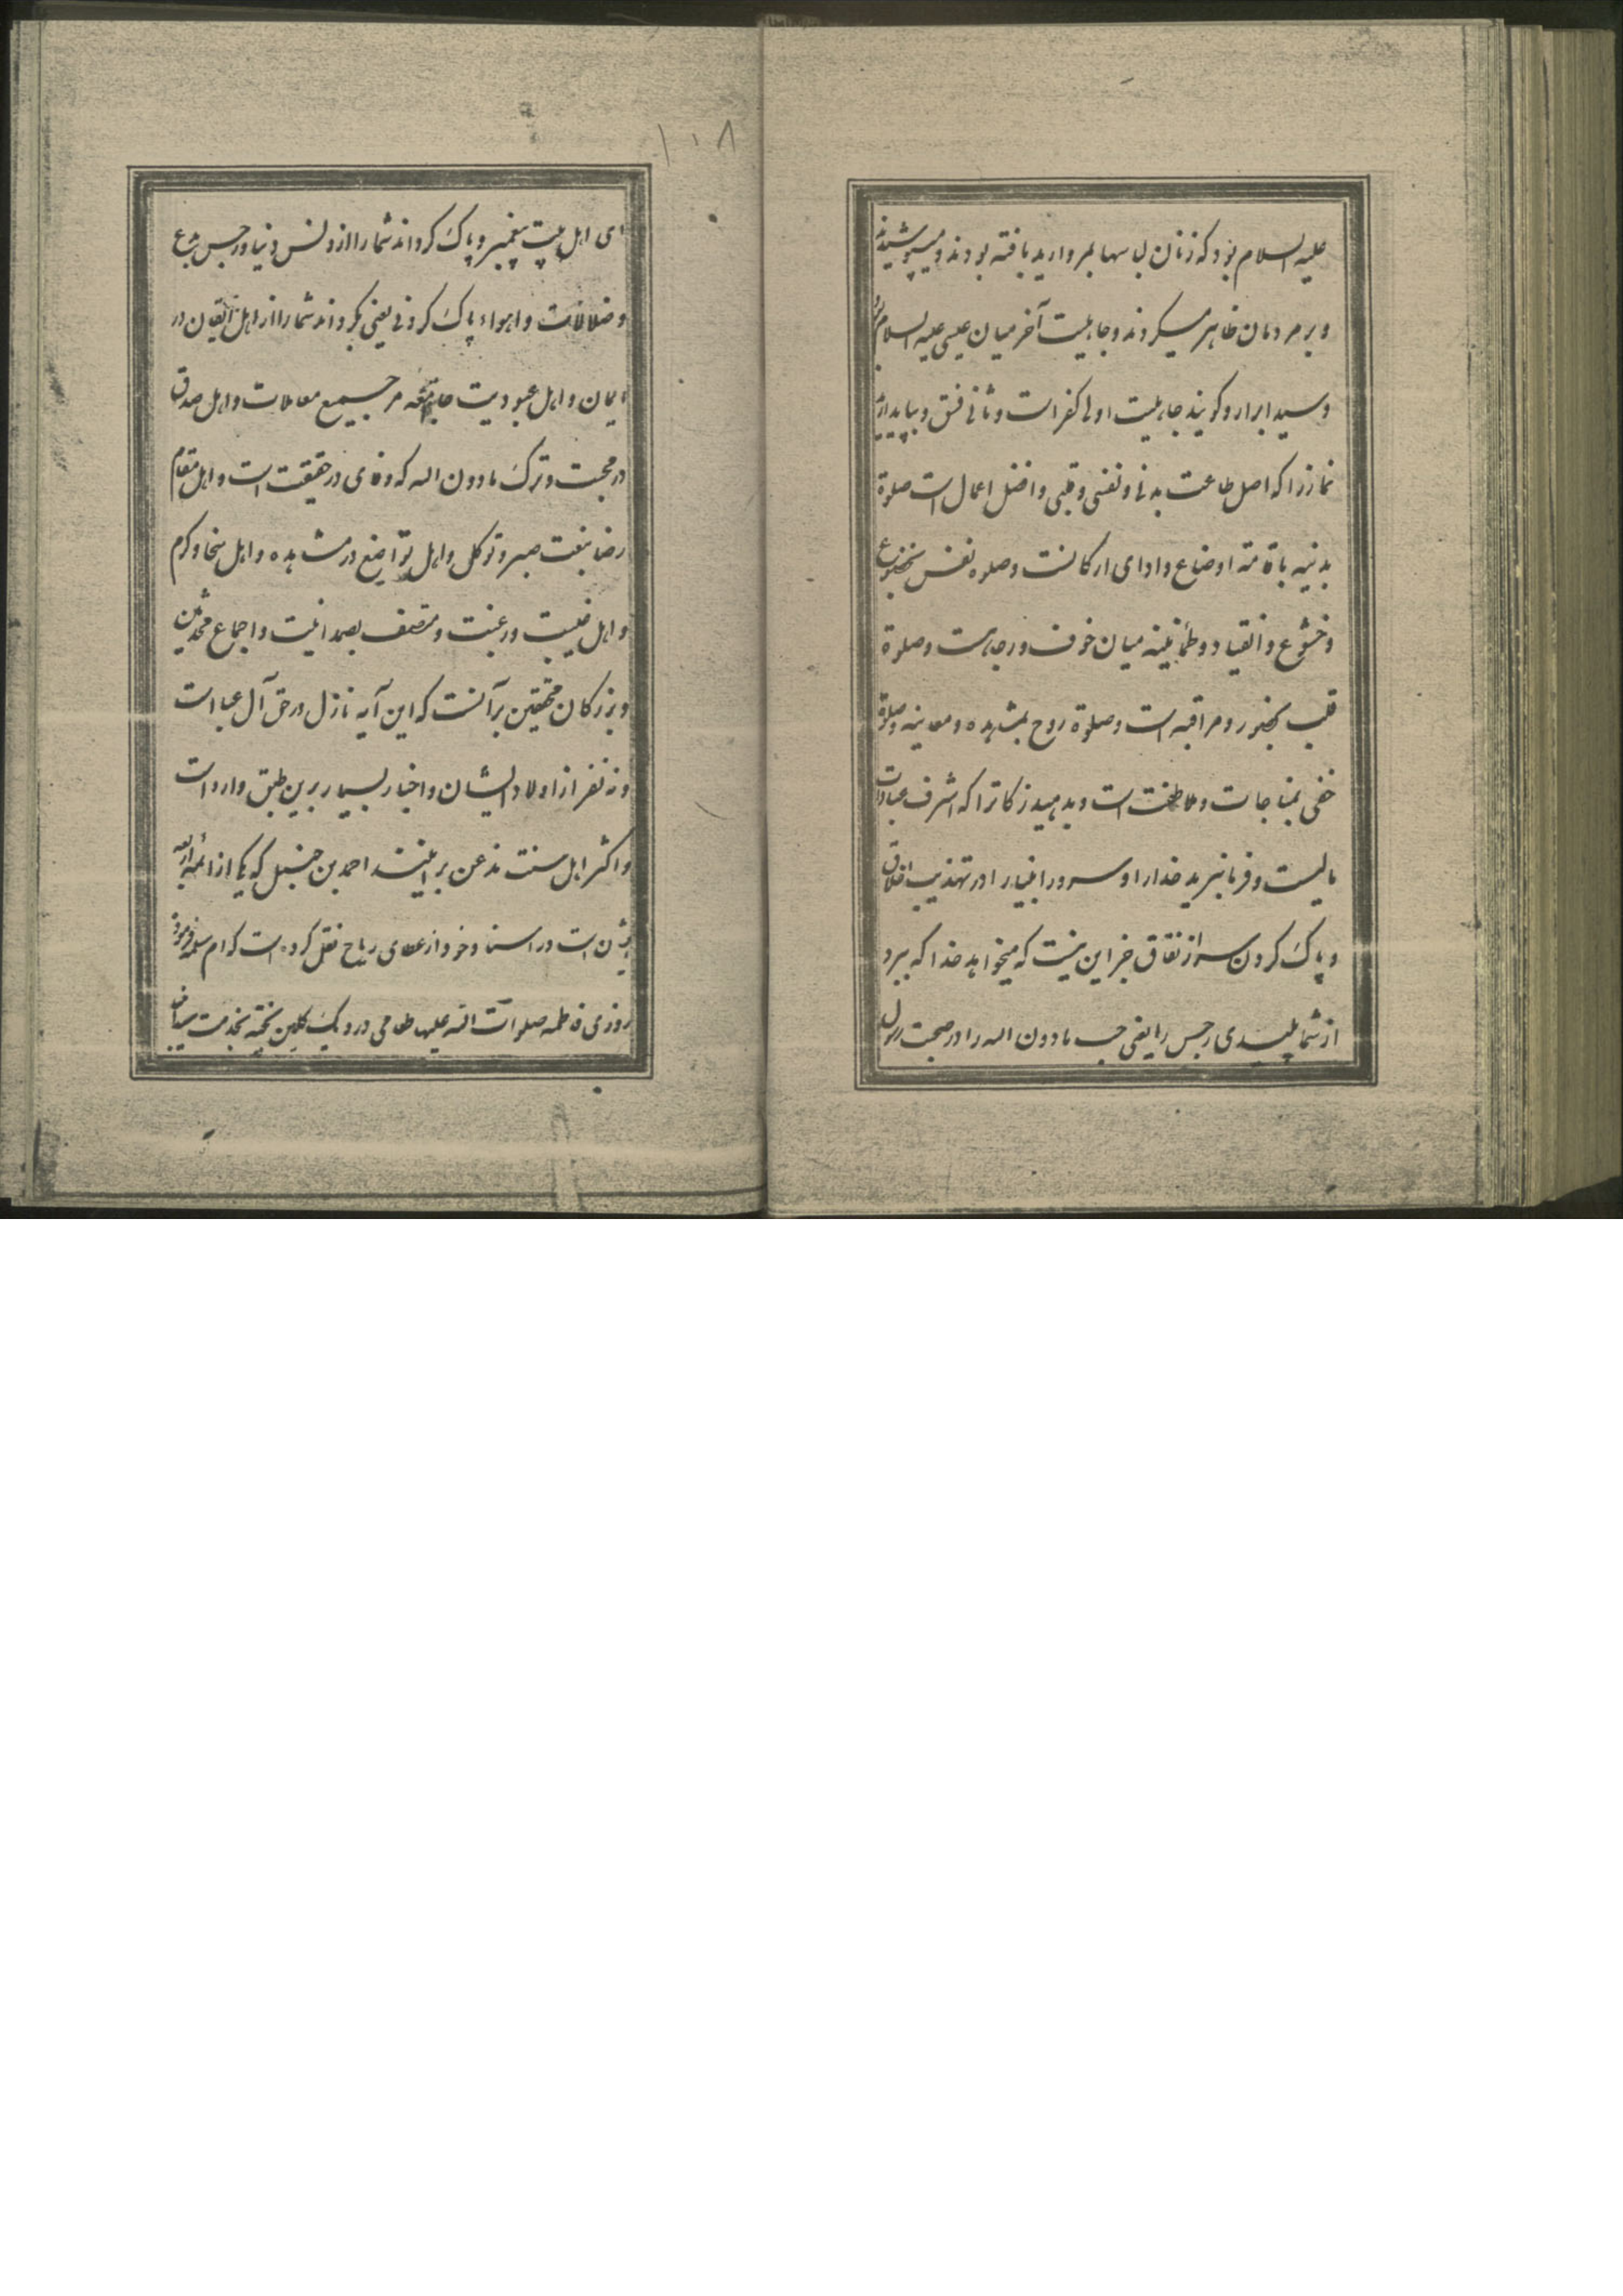 علیه السلام بود که زنان لباسها بمروارید بافته بودند و میپوشیدند
و بر مردمان ظاهر میکردند و جاهلیت آخر میان عیسی علیه السلام
و سید ابرار و کویند جاهلیت اولی کفر است و ثانی فسق و بپاید ارید
نماز را که اصل طاعت بدنی و نفسی و قلبی و افضل اعمال است صلوة
بدنیه باقامة اوضاع و ادای ارکانست و صلوه نفس بخضوع
و خشوع و انقیاد و طمأنینه میان خوف و رجاست و صلوة
قلب بحضور و مراقبه است و صلوة روح بمشاهده و معاینه و صلوة
خفی بمناجات و ملاطفت است و بدهید زکاترا که اشرف عبادات
مالیست و فرمانبرید خدا را و سرور انبیا را در تهذیب اخلاق
و پاک کردن سر از نفاق جز این نیست که میخواهد خدا که ببرد
از شما پلیدی رجس را یعنی حب مادون الله را در صحبت رسول
۱۰۸
ای اهل بیت پیغمبر و پاک کرداند شما را از دنس دنیا و رجس بدع
و ضلالات و اهواء پاک کردنی یعنی بکرداند شما را از اهل ایقان در
ایمان و اهل عبودیت جامعه مر جمیع معاملات و اهل صدق
در محبت و ترک مادون الله که وفای در حقیقت است و اهل مقام
رضا بنعت صبر و توکل و اهل تواضع در مشاهده و اهل سخا و کرم
و اهل هیبت و رغبت و متصف بصمدانیت و اجماع محدثین
و بزرکان محققین برآنست که این آیه نازل در حق آل عبا است
و نه نفر از اولاد ایشان و اخبار بسیار برین طبق وارد است
و اکثر اهل سنت مذعن بر اینند احمد بن حنبل که یکی از ائمه اربعه
ایشان است در اسناد خود از عطای رباح نقل کرده است که ام سلمه فرموده
روزی فاطمه صلوات الله علیها طعامی در دیک کلین پخته بخدمت